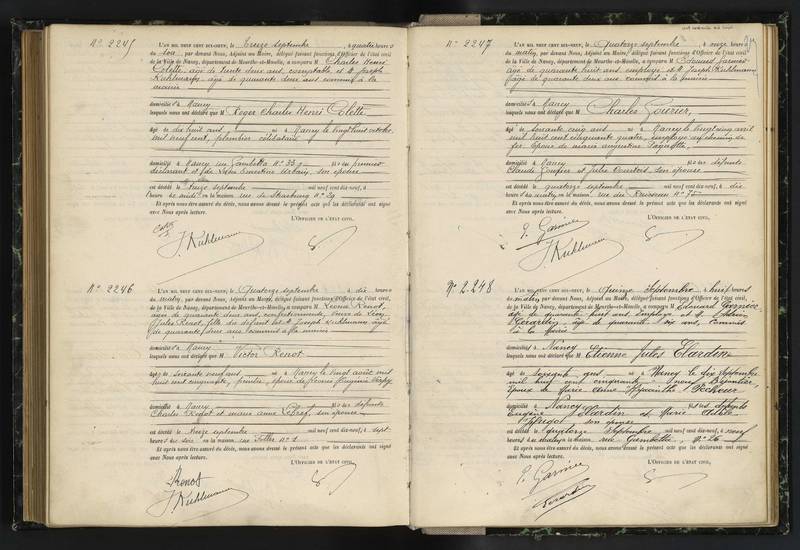 N° 2245
L'AN MIL NEUF CENT DIX-NEUF, le treize septembre, à quatre heures
du soir, par devant Nous, Adjoint au Maire, délégué faisant fonctions d'Officier de l'état civil,
de la Ville de Nancy, département de Meurthe-et-Moselle, a comparu M Charles Henri
Colette, âgé de trente deux ans, comptable et M Joseph
Kuhlmann, âgé de quarante deux ans commis à la
mairie
domiciliés à Nancy
lesquels nous ont déclaré que M Roger Charles Henri Colette
âgé de dix huit ans né à Nancy le vingt huit octobre
mil neuf cent, célibataire
domicilié à Nancy rue Gambetta N° 33 fils du premier
déclarant et de Ernestine, son épouse
est décédé le treize septembre mil neuf cent dix-neuf, à
heures midi en la maison, rue de Strasbourg N° 29
Et après nous être assuré du décès, nous avons dressé le présent acte que les déclarants ont signé
avec Nous après lecture.
L'OFFICIER DE L'ÉTAT CIVIL,
J. Kuhlmann
N° 2246
L'AN MIL NEUF CENT DIX-NEUF, le quatorze septembre à dix heures
du matin, par devant Nous, Adjoint au Maire, délégué faisant fonctions d'Officier de l'état civil,
de la Ville de Nancy, département de Meurthe-et-Moselle, a comparu M Renot,
âgée de quarante deux ans, veuve de Léon
Jules Renot, fille du défunt et M Joseph Kuhlmann âgé
de quarante deux ans commis à la mairie
domiciliés à Nancy
lesquels nous ont déclaré que M Victor Renot
âgé de soixante neuf ans né à Nancy le vingt août mil
huit cent cinquante, peintre, époux de
domicilié à Nancy fils des défunts
Charles Renot et Marie Anne, son épouse
est décédé le treize septembre mil neuf cent dix-neuf, à sept
heures du soir en la maison, rue N° 1
Et après nous être assuré du décès, nous avons dressé le présent acte que les déclarants ont signé
avec Nous après lecture.
L'OFFICIER DE L'ÉTAT CIVIL,
Renot
J. Kuhlmann
N° 2247
L'AN MIL NEUF CENT DIX-NEUF, le quatorze septembre à onze heures
du matin, par devant Nous, Adjoint au Maire, délégué faisant fonctions d'Officier de l'état civil,
de la Ville de Nancy, département de Meurthe-et-Moselle, a comparu M Edouard Garnier
âgé de quarante huit ans employé et M Joseph Kuhlmann
âgé de quarante deux ans commis à la mairie
domiciliés à Nancy
lesquels nous ont déclaré que M Charles
âgé de soixante cinq ans né à Nancy le vingt cinq avril
mil huit cent cinquante quatre, employé au chemin de
fer époux de Marie Augustine
domicilié à Nancy fils des défunts
Claude et Julie son épouse
est décédé le quatorze septembre mil neuf cent dix-neuf, à dix
heures du matin en la maison, rue du N°
Et après nous être assuré du décès, nous avons dressé le présent acte que les déclarants ont signé
avec Nous après lecture.
L'OFFICIER DE L'ÉTAT CIVIL,
E. Garnier
J. Kuhlmann
N° 2248
L'AN MIL NEUF CENT DIX-NEUF, le quinze Septembre à huit heures
du matin, par devant Nous, Adjoint au Maire, délégué faisant fonctions d'Officier de l'état civil,
de la Ville de Nancy, département de Meurthe-et-Moselle, a comparu M Edouard Garnier
âgé de quarante huit ans, employé et M
âgé de quarante six ans, commis
à la mairie
domiciliés à Nancy
lesquels nous ont déclaré que M Etienne Jules Clardin
âgé de soixante ans né à Nancy le dix Septembre
mil huit cent cinquante neuf
époux de Marie Anne Hyacinthe Pécheur
domicilié à Nancy fils des défunts
Eugène Clardin et Marie
son épouse
est décédé le quatorze Septembre mil neuf cent dix-neuf, à neuf
heures du matin en la maison, rue Gambetta, N° 26
Et après nous être assuré du décès, nous avons dressé le présent acte que les déclarants ont signé
avec Nous après lecture.
L'OFFICIER DE L'ÉTAT CIVIL,
E. Garnier